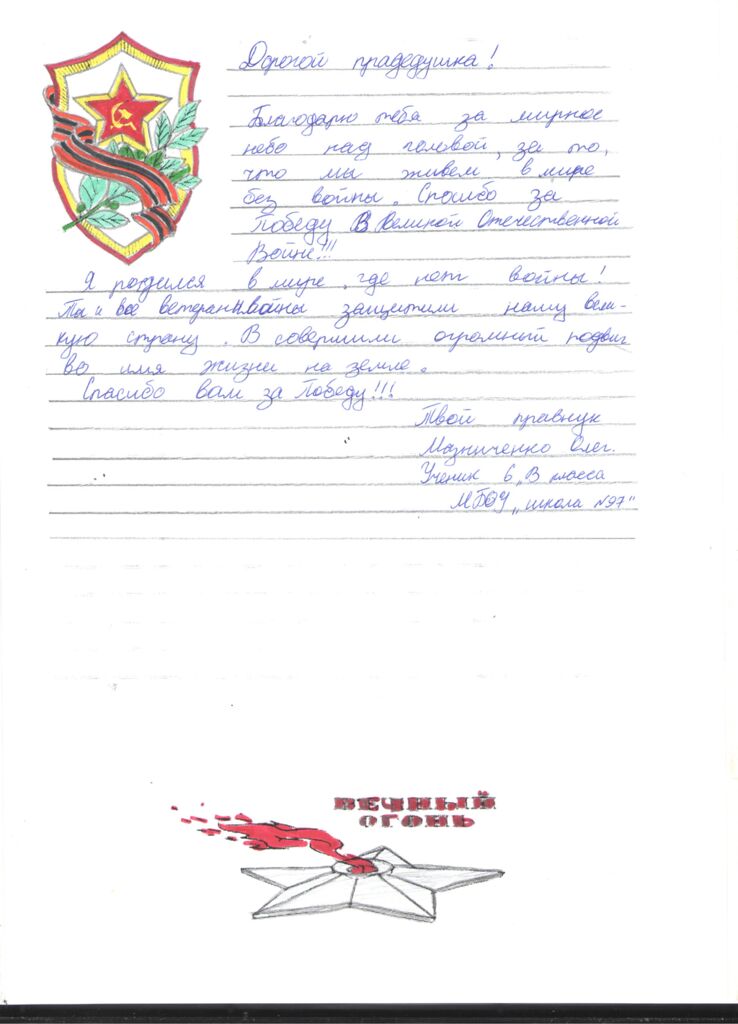 Дорогой прадедушка!
Благодарю тебя за мирное
небо над головой, за то,
что мы живем в мире
без войны. Спасибо за
Победу В Великой Отечественной
Войне!!!
Я родился в мире, где нет войны!
Ты и все ветераны войны защитили нашу вели-
кую страну. В совершили огромный подвиг
во имя жизни на земле.
Спасибо вам за Победу!!!
Твой правнук
Мазниченко Олег.
Ученик 6 „В класса
МБОУ „школа №97"
ВЕЧНЫЙ
ОГОНЬ